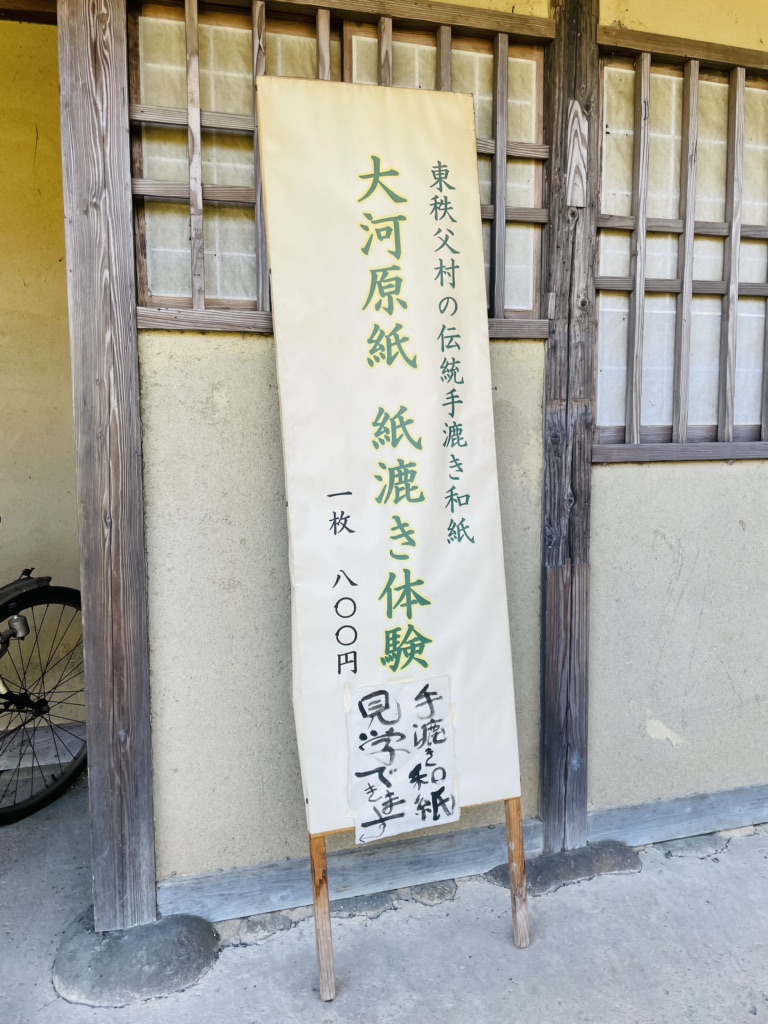 東秩父村の伝統手漉き和紙
大河原紙 紙漉き体験
一枚 八〇〇円
手漉き和紙
見学できます